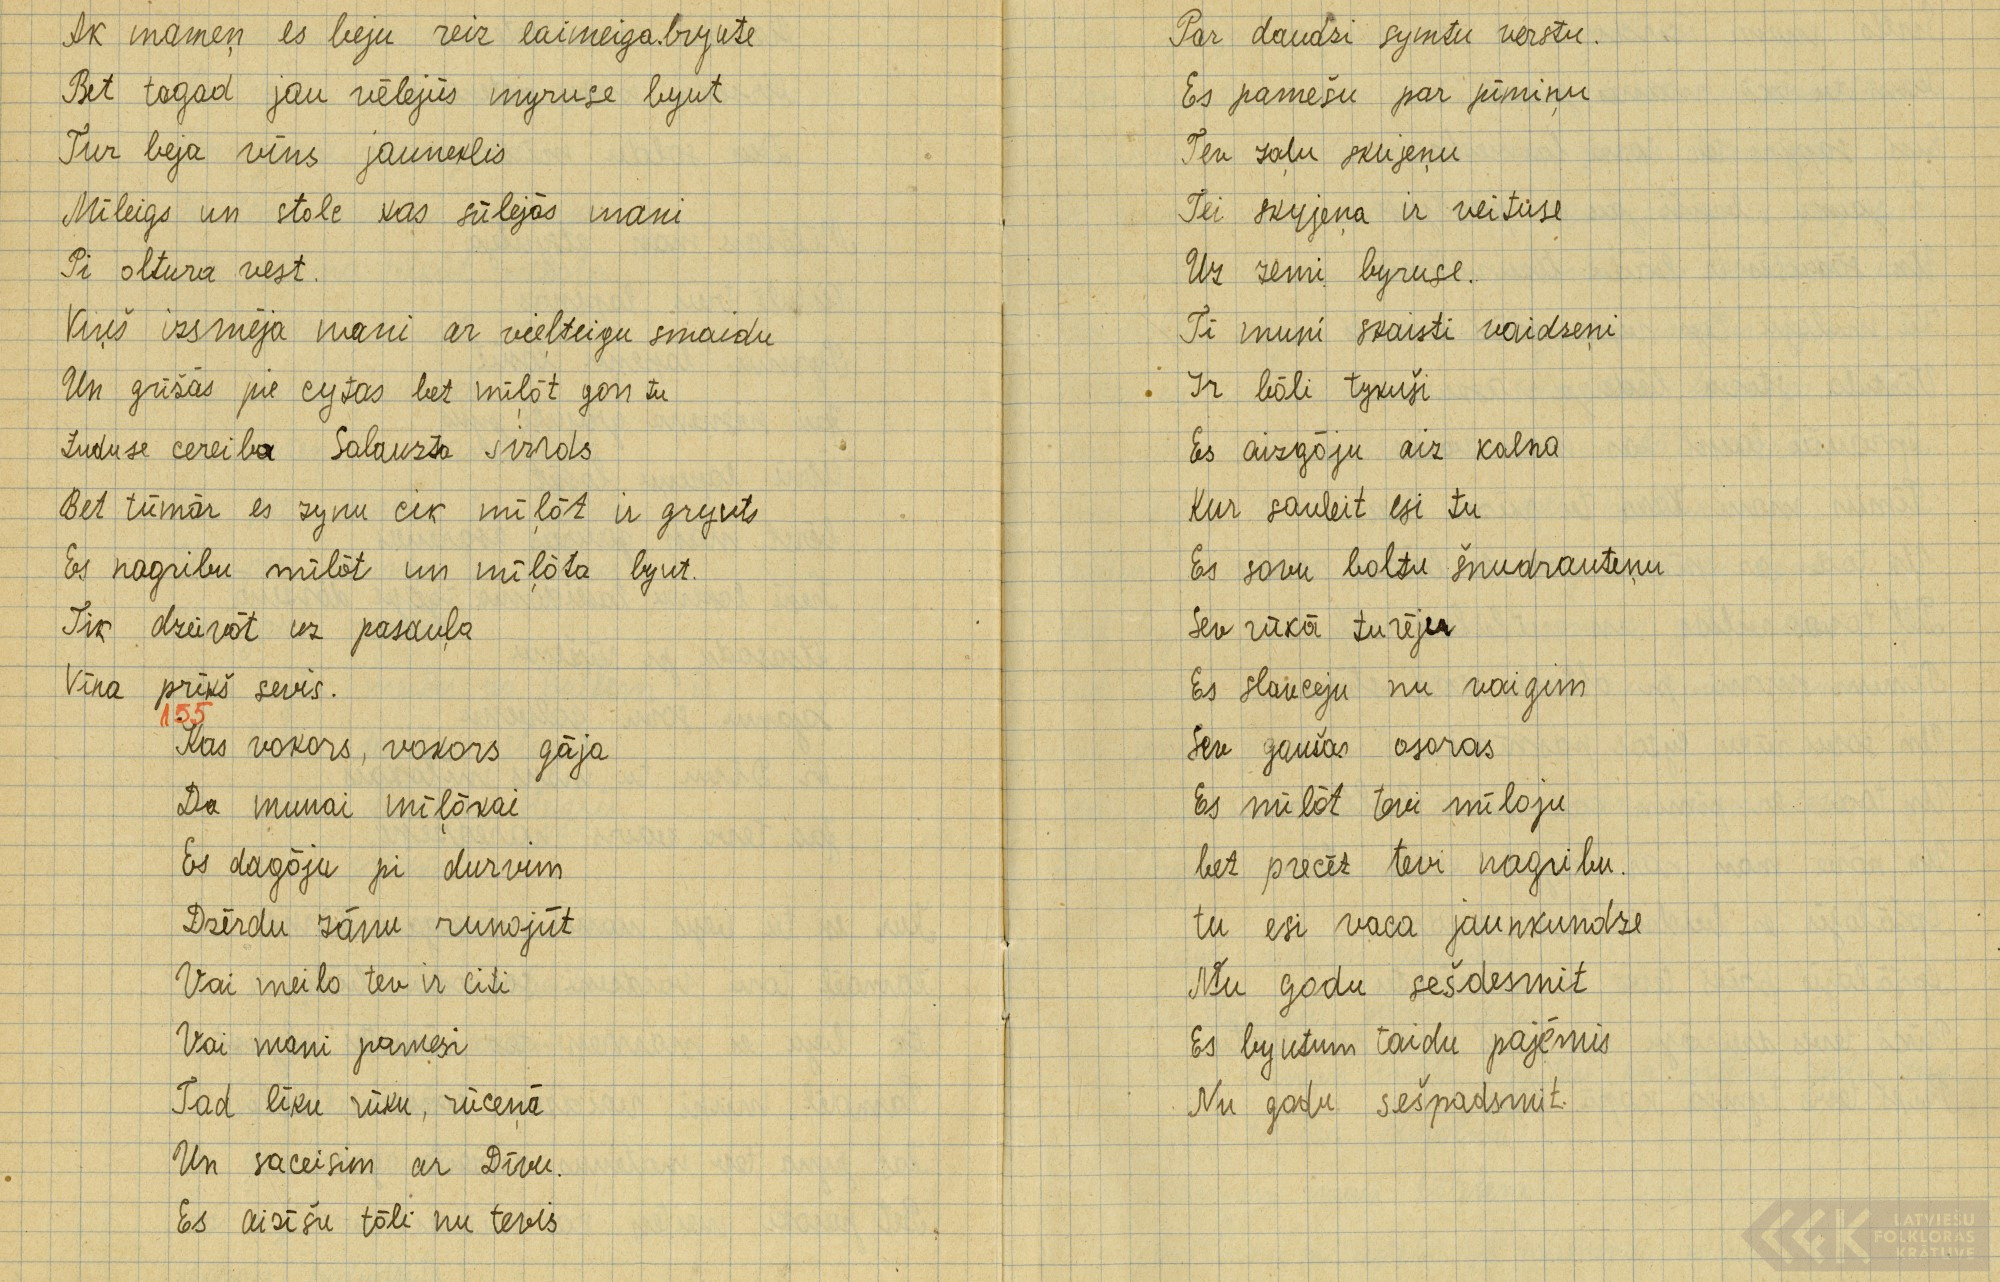 Ak mameņ es beju reiz laimeiga bryute
Bet tagad jau vēlejūs myruse byut
Tur beja vīns jauneklis
Mīleigs un stole kas sūlejās mani
Pi oltura vest.
Viņš izsmēja mani ar vieļteigu smaidu
Un grīžās pie cytas bet mīļōt gon tu
zuduse cereiba Salauzta sirds
Bet tūmār es zynu cik mīļōt ir gryuts
Es nagribu mīlōt un mīļōta byut.
Tik dzeivōt uz pasauļa
Vīna prīkš sevis.
155
Kas vokors, vokors gāja
Da munai mīļōkai
Es dagōju pi durvim
Dzērdu zānu runojūt
Vai meilo tev ir citi
Vai mani pamesi
Tad līku rūku, rūceņā
Un saceisim ar Dīvu.
Es aizīšu tōli nu tevis
Par daudzi symtu verstu.
Es pamešu par pīmiņu
Tev zaļu skujeņu
Tei skyjeņa ir veituse
Uz zemi byruse.
Tī muni skaisti vaidzeņi
Ir bōli tykuši
Es aizgōju aiz kalna
Kur sauleit esi tu
Es sovu boltu šnudrauteņu
Sev rūkā turēju
Es slauceju nu vaigim
Sev gaužas osoras
Es mīlōt tevi mīloju
bet precēt tevi nagribu.
tu esi vaca jaunkundze
Nu godu sešdesmit
Es byutum taidu pajēmis
Nu godu sešpadsmit.
LATVIEŠU
FOLKLORAS
KRĀTUVE